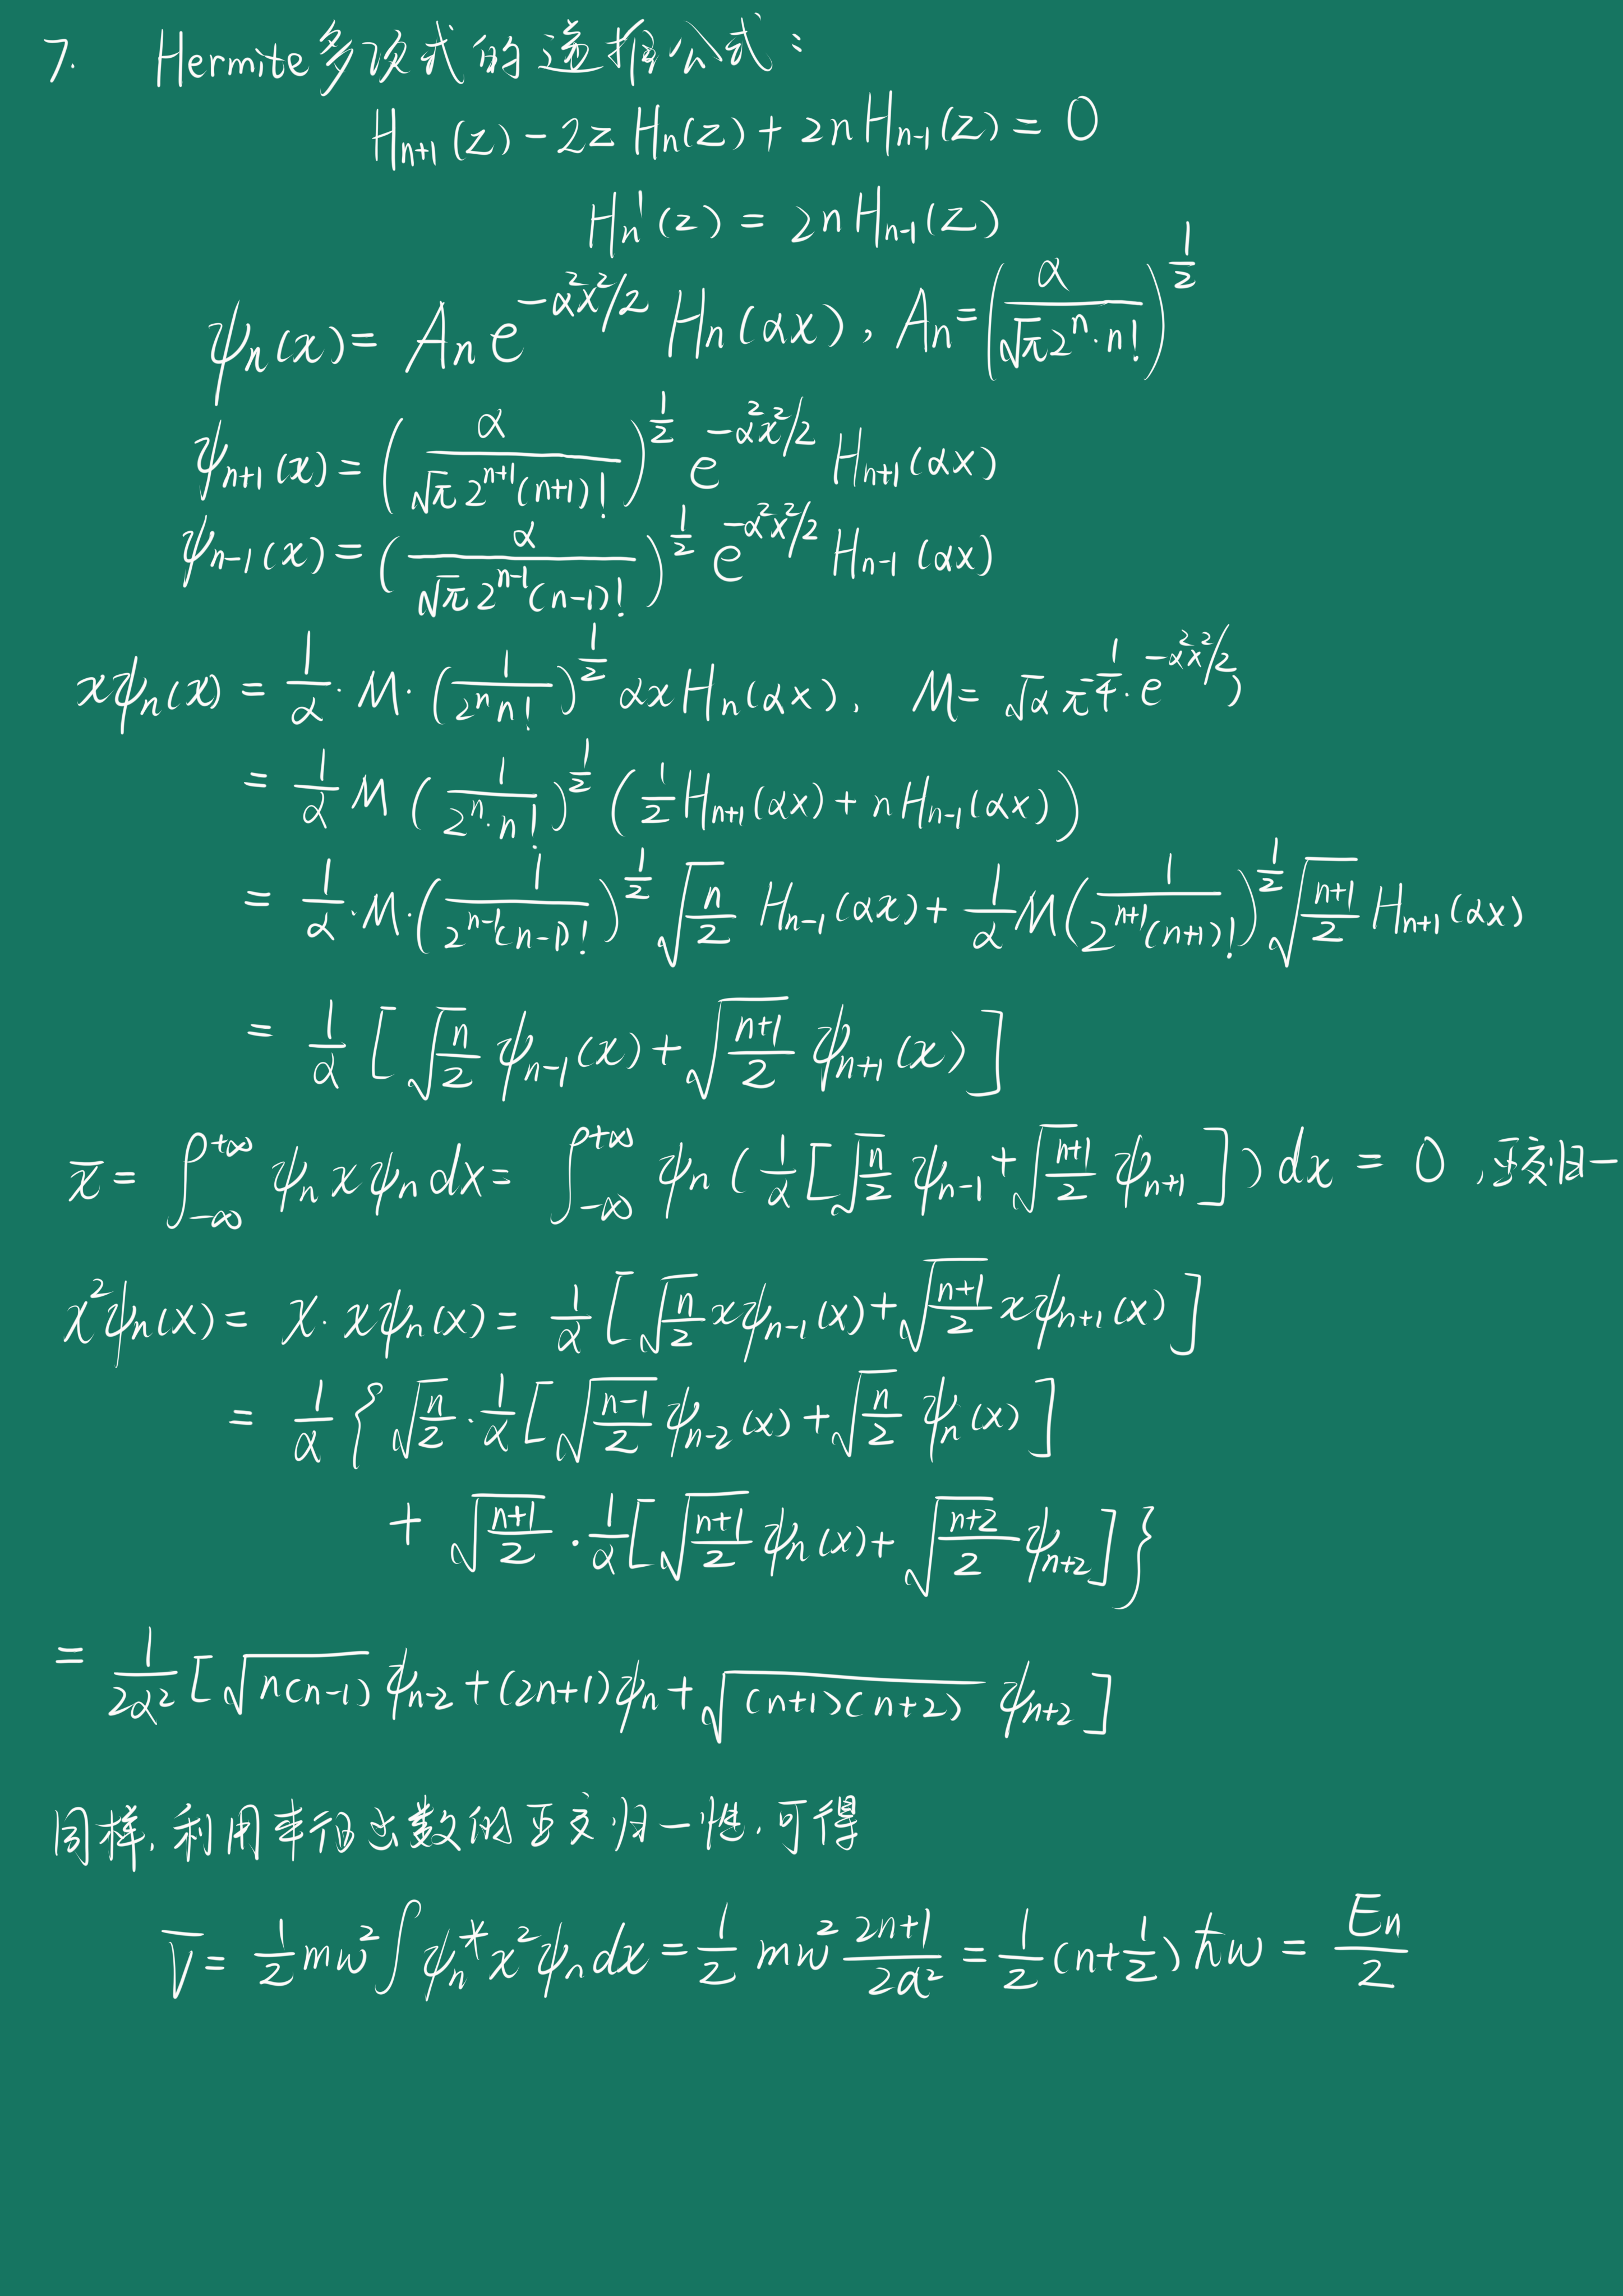 7. Hermite多项式的递推公式:
H_{n+1}(z) - 2z H_n(z) + 2n H_{n-1}(z) = 0
H_n'(z) = 2n H_{n-1}(z)
ψ_n(x) = A_n e^{-α²x²/2} H_n(αx), A_n = (α/(√π 2^n · n!))^{1/2}
ψ_{n+1}(x) = (α/(√π 2^{n+1}(n+1)!))^{1/2} e^{-α²x²/2} H_{n+1}(αx)
ψ_{n-1}(x) = (α/(√π 2^{n-1}(n-1)!))^{1/2} e^{-α²x²/2} H_{n-1}(αx)
xψ_n(x) = 1/α · M · (1/(2^n n!))^{1/2} αx H_n(αx), M = √α π^{-1/4} · e^{-α²x²/2})
= 1/α M (1/(2^n · n!))^{1/2} (1/2 H_{n+1}(αx) + n H_{n-1}(αx))
= 1/α · M · (1/(2^{n-1}(n-1)!))^{1/2} √(n/2) H_{n-1}(αx) + 1/α M (1/(2^{n+1}(n+1)!))^{1/2} √((n+1)/2) H_{n+1}(αx)
= 1/α [√(n/2) ψ_{n-1}(x) + √((n+1)/2) ψ_{n+1}(x)]
x̄ = ∫_{-∞}^{+∞} ψ_n x ψ_n dx = ∫_{-∞}^{+∞} ψ_n (1/α [√(n/2) ψ_{n-1} + √((n+1)/2) ψ_{n+1}]) dx = 0, 正交归一
x²ψ_n(x) = x · xψ_n(x) = 1/α [√(n/2) xψ_{n-1}(x) + √((n+1)/2) xψ_{n+1}(x)]
= 1/α {√(n/2) · 1/α [√((n-1)/2) ψ_{n-2}(x) + √(n/2) ψ_n(x)]
+ √((n+1)/2) · 1/α [√((n+1)/2) ψ_n(x) + √((n+2)/2) ψ_{n+2}]}
= 1/(2α²) [√(n(n-1)) ψ_{n-2} + (2n+1)ψ_n + √((n+1)(n+2)) ψ_{n+2}]
同样, 利用本征函数的正交归一性, 可得
V̄ = 1/2 mω² ∫ ψ_n* x² ψ_n dx = 1/2 mω² (2n+1)/(2α²) = 1/2 (n+1/2) ħω = E_n/2